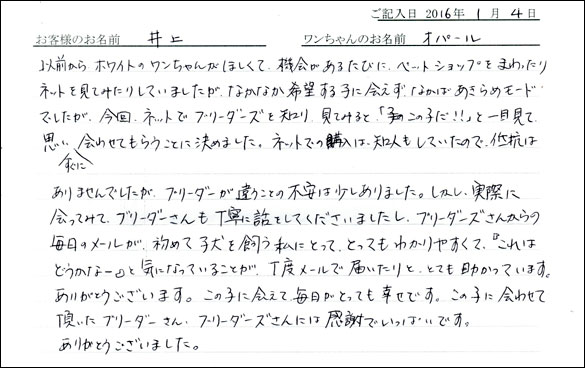 ご記入日 2016年 1月 4日
お客様のお名前 井上 ワンちゃんのお名前 オパール
以前から ホワイトの ワンちゃんが ほしくて、機会が あるたびに、ペットショップを まわったり
ネットを 見てみたり していましたが、なかなか 希望する子に 会えず、なかば あきらめモード
でしたが、今回、ネットで ブリーダーズを 知り、見てみると 「この子だ!!」と 一目見て
思い、すぐに 会わせてもらうことに 決めました。ネットでの 購入は、知人もしていたので、抵抗は
ありませんでしたが、ブリーダーが 違うことの 不安は 少しありました。しかし、実際に
会ってみて、ブリーダーさんも 丁寧に 話をしてくださいましたし、ブリーダーズさんからの
毎日のメールが、初めて 子犬を 飼う 私にとって、とってもわかりやすくて、『これは
どうかなー』と 気になっていることが、丁度メールで 届いたりと、とても 助かっています。
ありがとうございます。この子に 会えて 毎日が とっても 幸せです。この子に 会わせて
頂いた ブリーダーさん、ブリーダーズさんには 感謝で いっぱいです。
ありがとうございました。